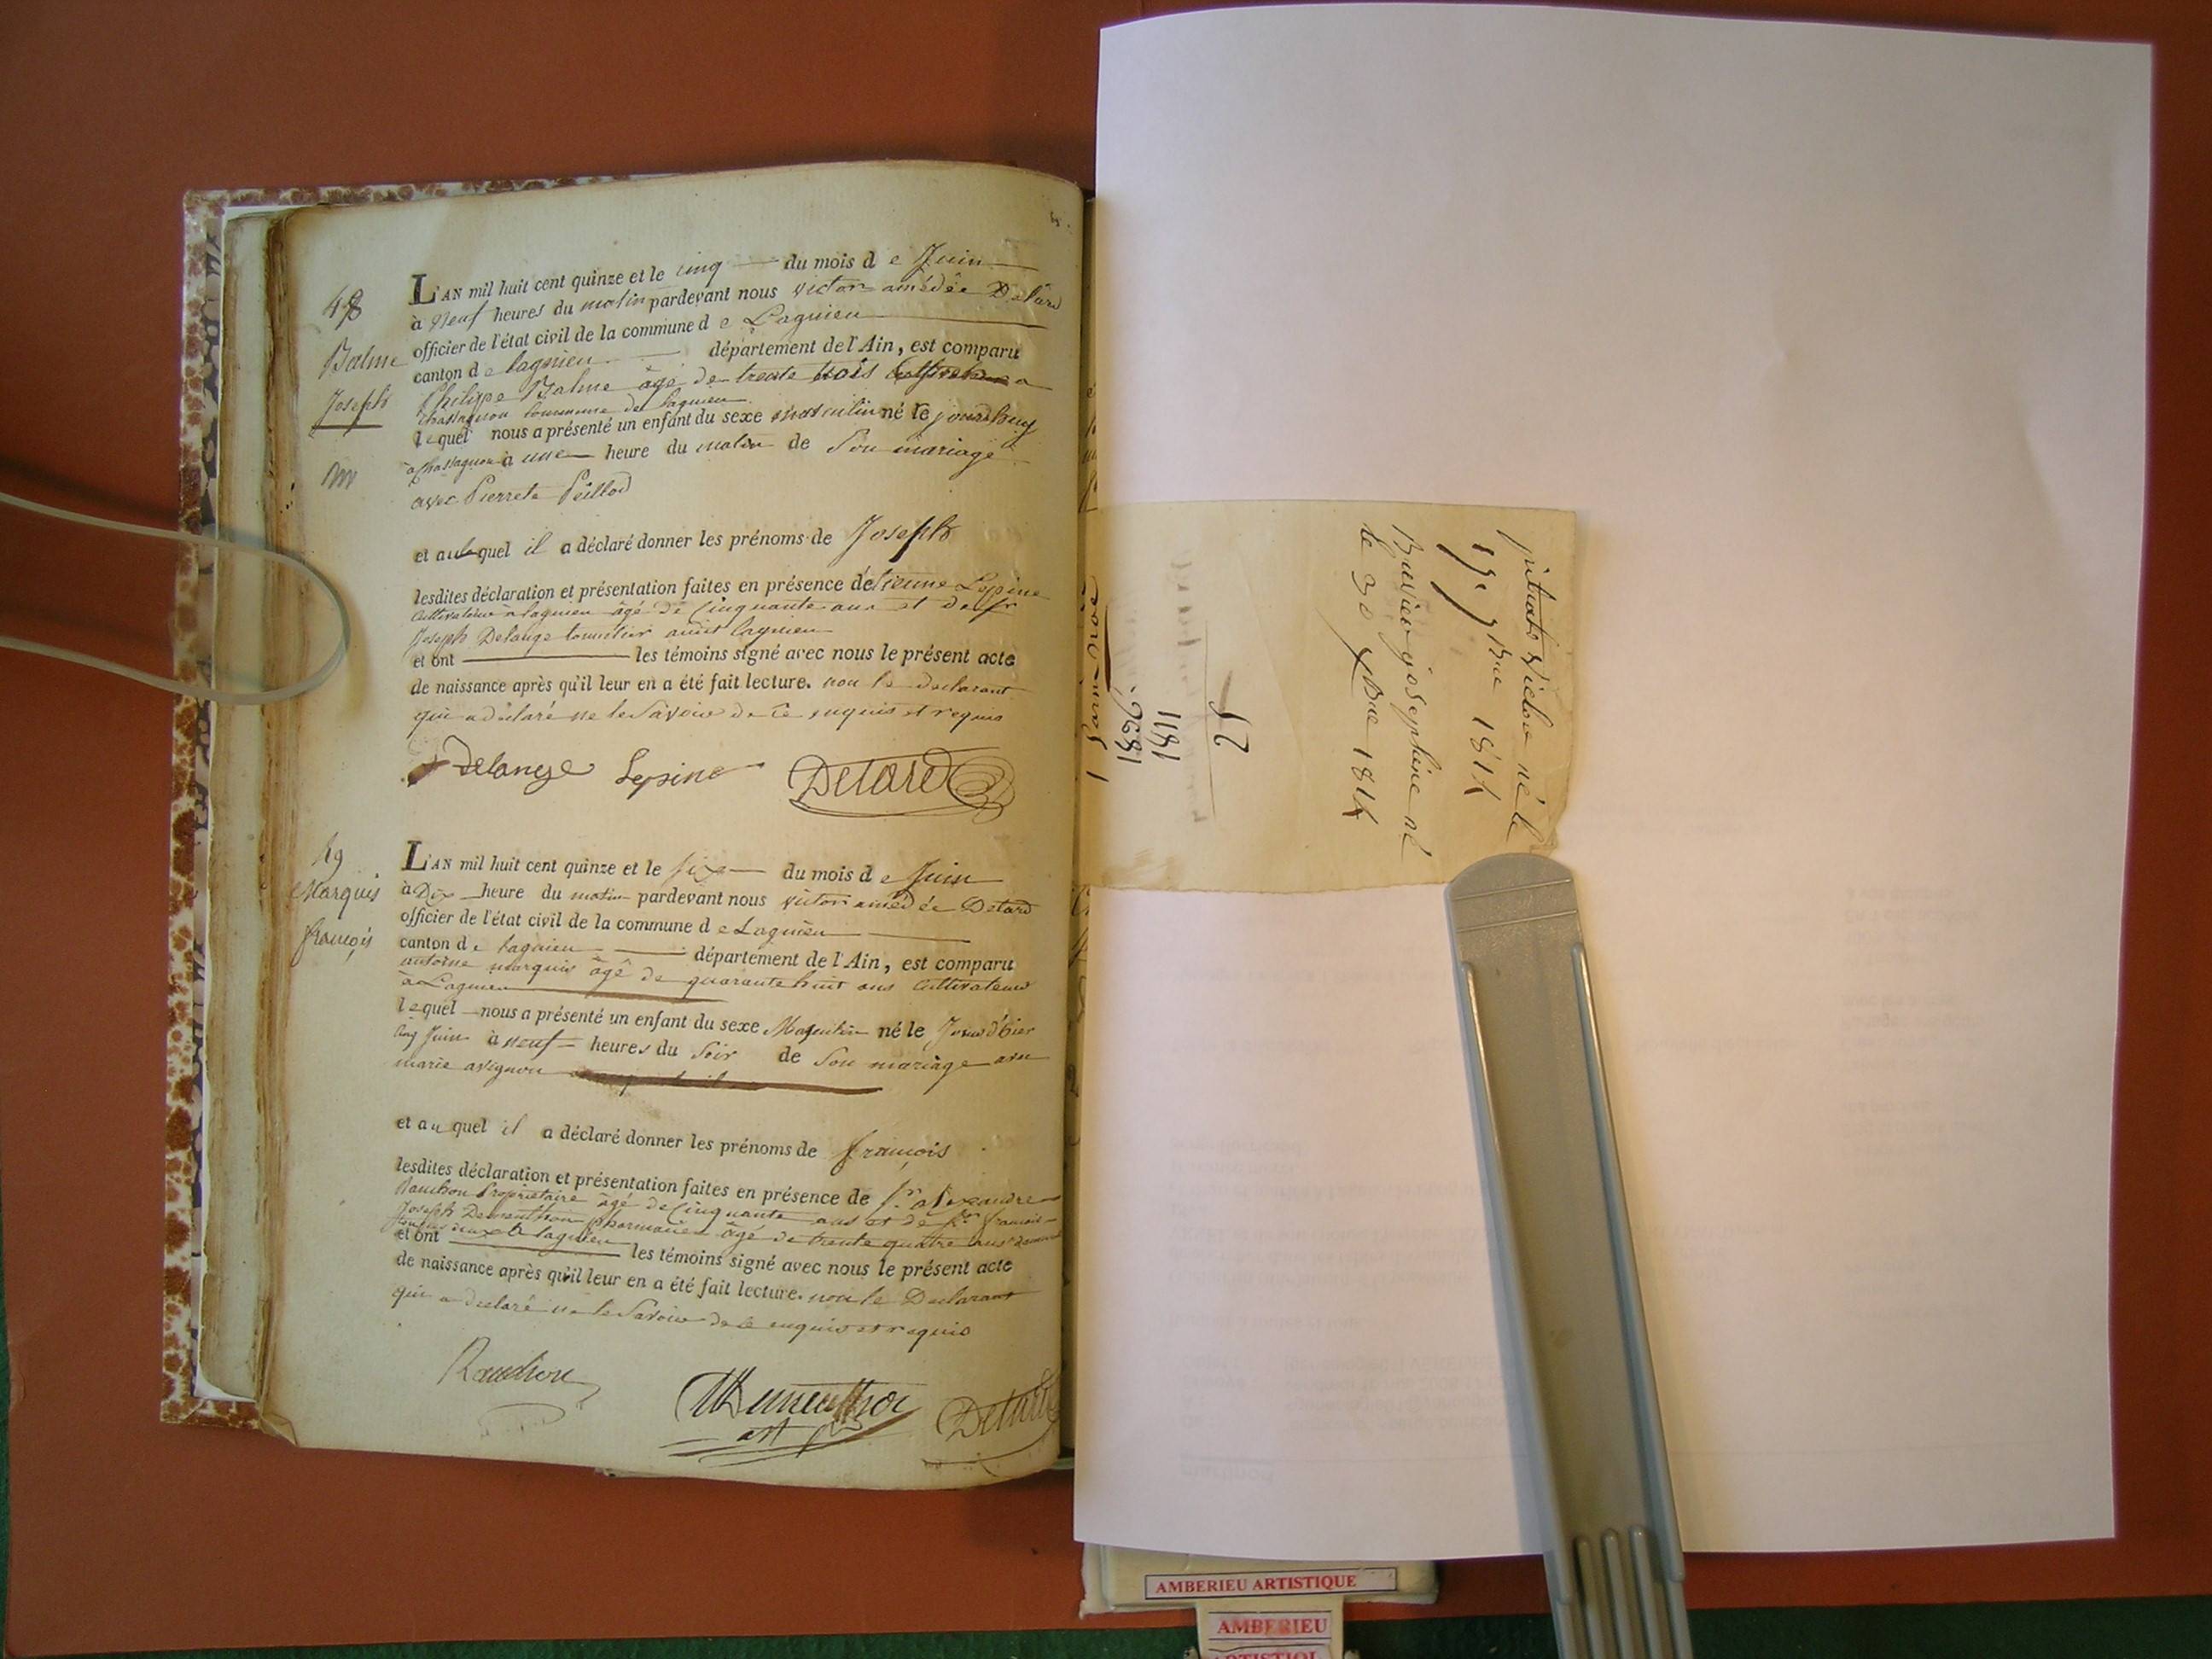 48
Balme
Joseph
m
L'AN mil huit cent quinze et le cinq du mois d e Juin
à Neuf heures du matin pardevant nous victor amédée Detard
officier de l'état civil de la commune d e Lagnieu
canton d e lagnieu département de l'Ain, est comparu
Philippe Balme âgé de trente trois a
Chassagnon commune de lagnieu
lequel nous a présenté un enfant du sexe masculin né le jourdhuy
à Chassagnon à une heure du matin de Son mariage
avec Pierrete Peillod
et au quel il a déclaré donner les prénoms de Joseph
lesdites déclaration et présentation faites en présence détienne Lepine
Cultivateur à lagnieu âgé de Cinquante ans et de
Joseph Delange lagnieu
et ont les témoins signé avec nous le présent acte
de naissance après qu'il leur en a été fait lecture. non le declarant
qui a declaré ne le Savoir de ce enquis et requis
Delange Lepine Detard
49
Marquis
françois
L'AN mil huit cent quinze et le six du mois d e Juin
à Dix heure du matin pardevant nous victor amédée Detard
officier de l'état civil de la commune d e Lagnieu
canton d e lagnieu département de l'Ain, est comparu
antoine marquis âgé de quarante huit ans Cultivateur
à Lagnieu
lequel nous a présenté un enfant du sexe Masculin né le Jour d'hier
Cinq Juin à neuf heures du Soir de Son mariage avec
marie avignon
et au quel il a déclaré donner les prénoms de françois
lesdites déclaration et présentation faites en présence de Sr. alexandre
Raudhon Propriétaire âgé de Cinquante ans et de Sr. francois
Joseph Dementhon pharmacien âgé de trente quatre ans
tous les deux à lagnieu
et ont les témoins signé avec nous le présent acte
de naissance après qu'il leur en a été fait lecture. non le Declarant
qui a declaré ne le Savoir de ce enquis et requis
Detard
victoire né le
19 9bre 1814
josephine né
le 30 xbre 1814
25
1811
1896
AMBERIEU ARTISTIQUE
AMBERIEU
ARTISTIQU